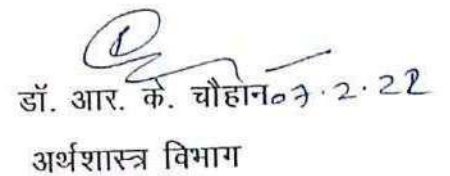 डॉ. आर. के. चौहान 07.2.22
अर्थशास्त्र विभाग